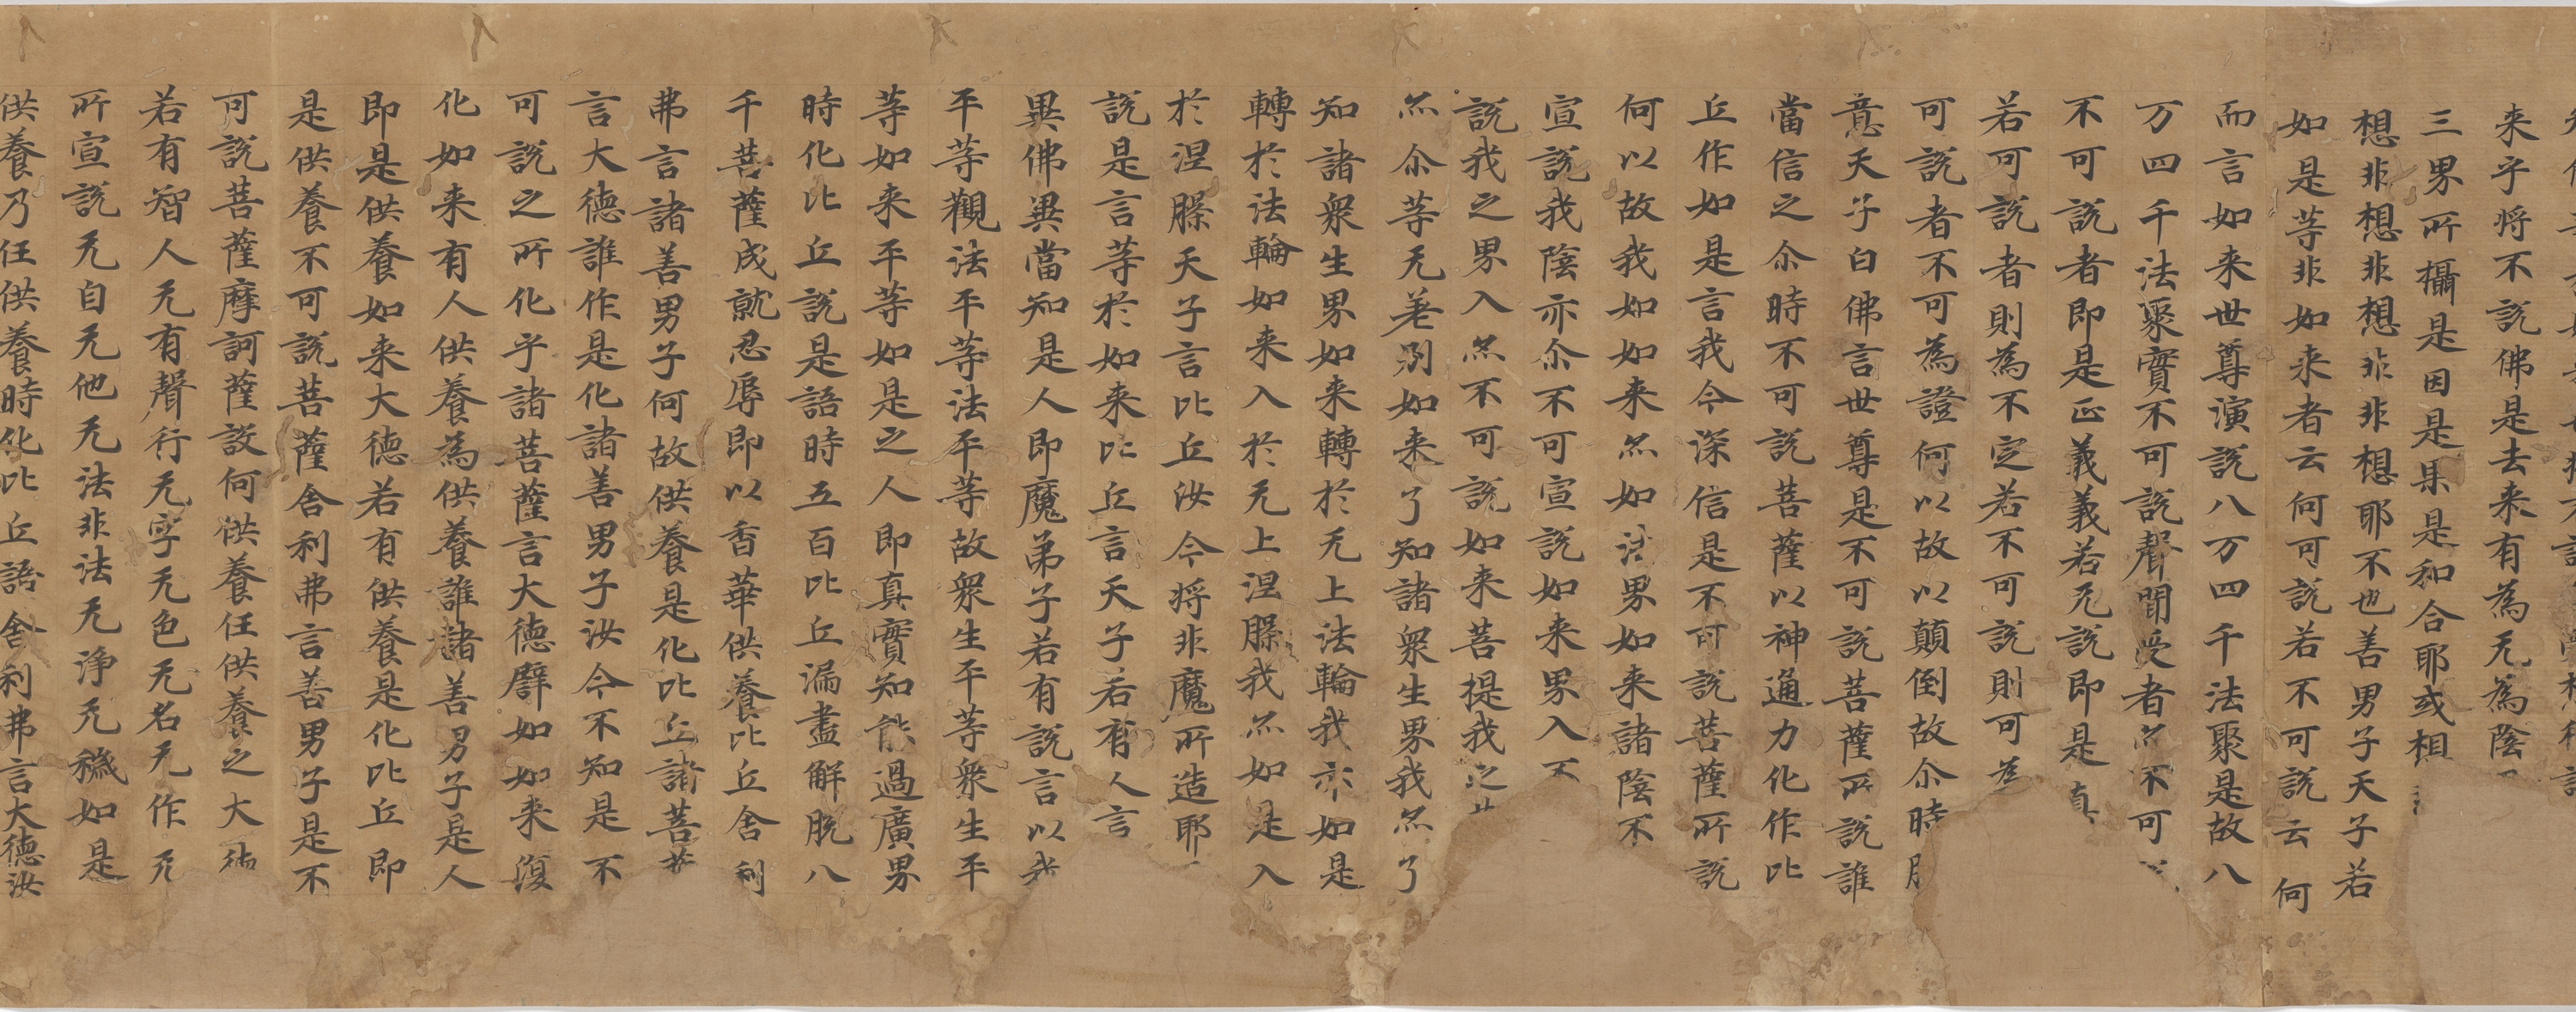 来乎将不説佛是去来有為无為陰
三界所攝是因是果是和合耶或相
想非想非想非非想耶不也善男子天子若
如是等非如来者云何可説若不可説云何
而言如来世尊演説八万四千法聚是故八
万四千法聚實不可説聲聞受者亦不可
不可説者即是正義義若无説即是真
若可説者則為不定若不可説則可為
可説者不可為證何以故以顛倒故尒時
意天子白佛言世尊是不可説菩薩所説誰
當信之尒時不可説菩薩以神通力化作比
丘作如是言我今深信是不可説菩薩所説
何以故我如如来亦如法界如来諸陰不
宣説我陰亦尒不可宣説如来界入不
説我之界入亦不可説如来菩提我之菩
亦尒等无差別如来了知諸衆生界我亦了
知諸衆生界如来轉於无上法輪我亦如是
轉於法輪如来入於无上涅槃我亦如是入
於涅槃天子言比丘汝今将非魔所造耶
説是言等於如来比丘言天子若有人言
異佛異當知是人即魔弟子若有説言以我
平等觀法平等法平等故衆生平等衆生平
等如来平等如是之人即真實知能過廣界
時化比丘説是語時五百比丘漏盡解脱八
千菩薩成就忍辱即以香華供養比丘舎利
弗言諸善男子何故供養是化比丘諸菩薩
言大徳誰作是化諸善男子汝今不知是不
可説之所化乎諸菩薩言大徳譬如如来復
化如来有人供養為供養誰諸善男子是人
即是供養如来大徳若有供養是化比丘即
是供養不可説菩薩舎利弗言善男子是不
可説菩薩摩訶薩設何供養任供養之大徳
若有智人无有聲行无字无色无名无作无
所宣説无自无他无法非法无浄无穢如是
供養乃任供養時化比丘語舎利弗言大徳汝